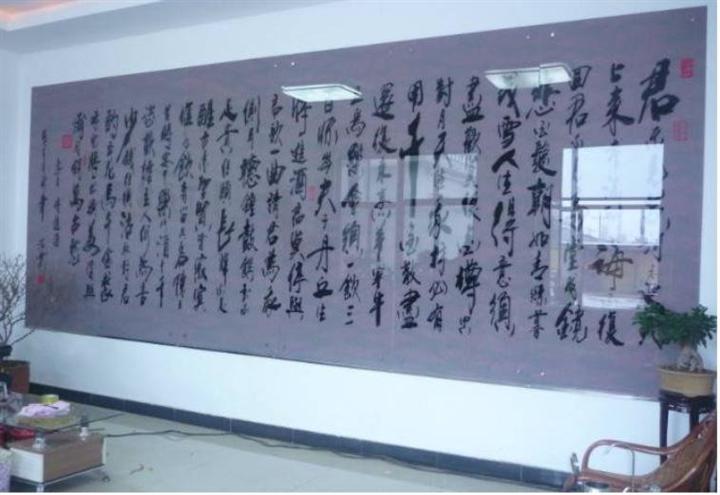 君不見
上來 海 復
回君不見高堂明鏡
悲白髮朝如青絲暮
成雪人生得意須
盡歡莫使金樽空
對月天生我材必有
用千金散盡
還復來烹羊宰牛
且為樂會須一飲三
百杯岑夫子丹丘生
將進酒君莫停與
君歌一曲請君為我
側耳聽鐘鼓饌玉不
足貴但願長醉不
醒古來聖賢皆寂寞
惟有飲者留其名
昔時宴平樂斗酒十千
恣歡謔主人何為言
少錢徑須沽取對君
酌五花馬千金裘
呼兒將出換美酒與
爾同銷萬古愁